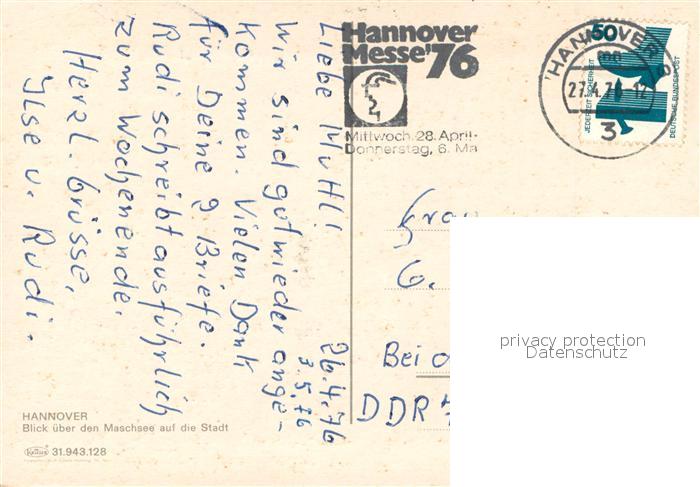 Hannover
Messe'76
Mittwoch, 28. April-
Donnerstag, 6. Ma
HANNOVER
27.4.76-12
3
50
JEDERZEIT SICHERHEIT
DEUTSCHE BUNDESPOST
26.4.76
3.5.76
Liebe Mutti!
Wir sind gut wieder ange-
kommen. Vielen Dank
für Deine 2 Briefe.
Rudi schreibt ausführlich
zum Wochenende.
Herzl. Grüsse,
Ilse u. Rudi.
Frau
G.
Bei
DDR
privacy protection
Datenschutz
HANNOVER
Blick über den Maschsee auf die Stadt
Krüger 31.943.128